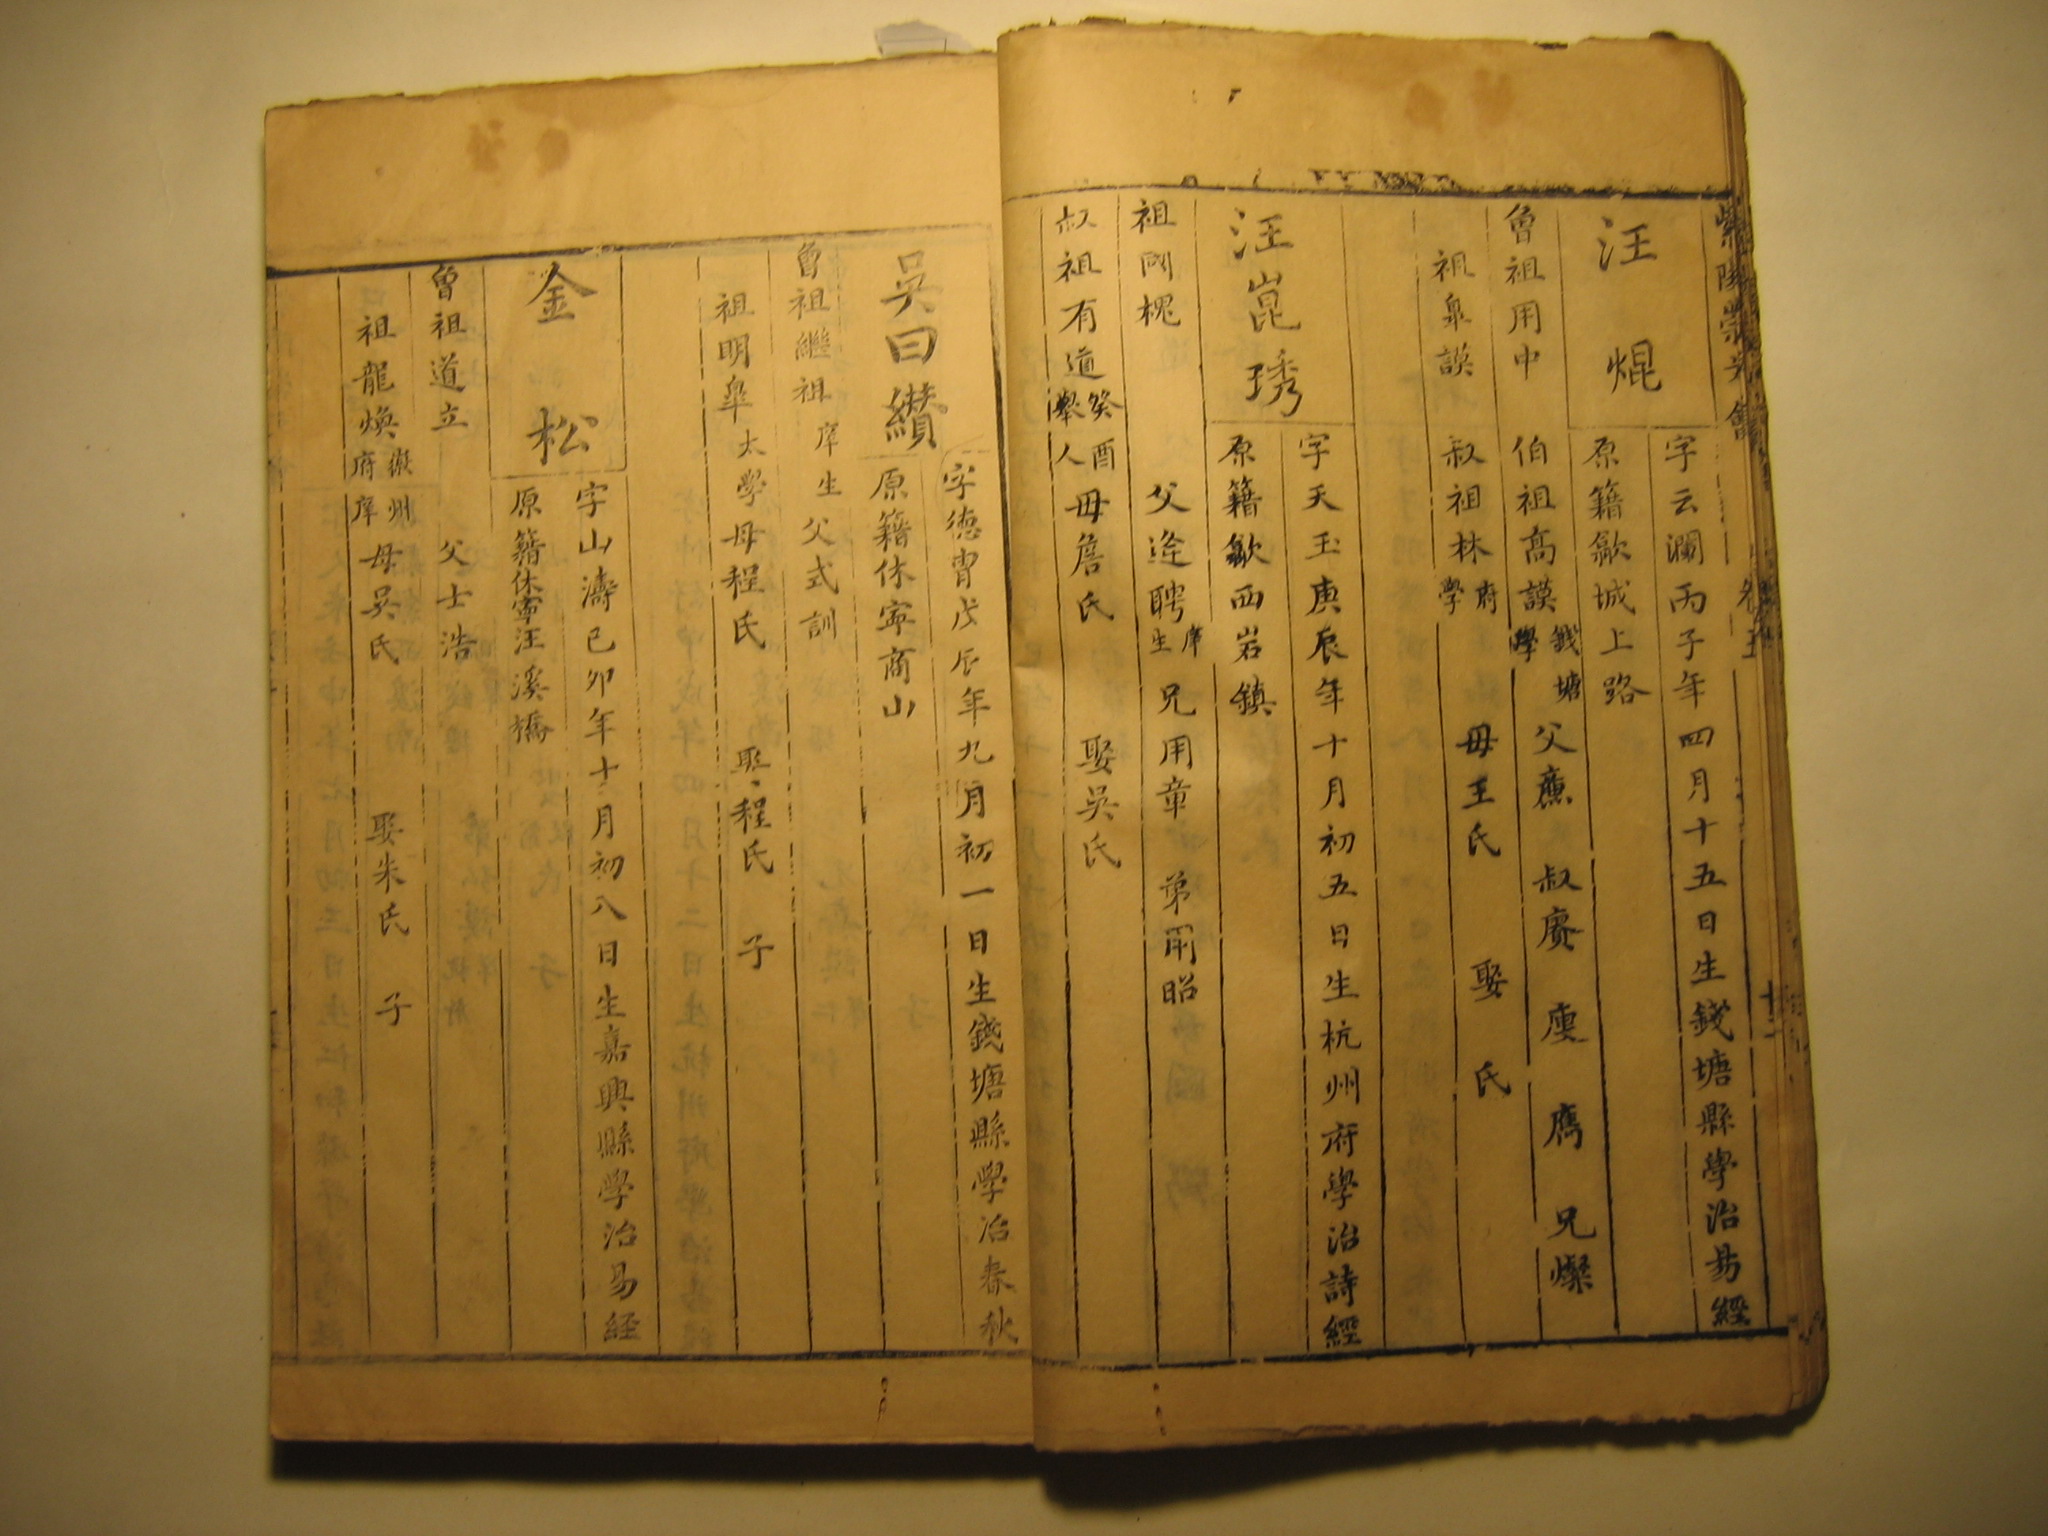 紫陽崇文會 卷五 十二
汪焜
字云瀾丙子年四月十五日生錢塘縣學治易經
原籍歙城上路
曾祖用中 伯祖高謨錢塘學 父薰 叔賡 慶 廌 兄燦
祖臯謨 叔祖林府學 母王氏 娶 氏
汪崑琇
字天玉庚辰年十月初五日生杭州府學治詩經
原籍歙西岩鎮
祖國槐 父逄聘庠生 兄用章 弟用昭
叔祖有道癸酉舉人 母詹氏 娶吳氏
吳曰纘
字德胄戊辰年九月初一日生錢塘縣學治春秋
原籍休寧商山
曾祖繼祖庠生 父式訓
祖明臯太學 母程氏 娶程氏 子
金松
字山濤己卯年十月初八日生嘉興縣學治易經
原籍休寧汪溪橋
曾祖道立 父士浩
祖龍煥徽州府庠 母吳氏 娶朱氏 子